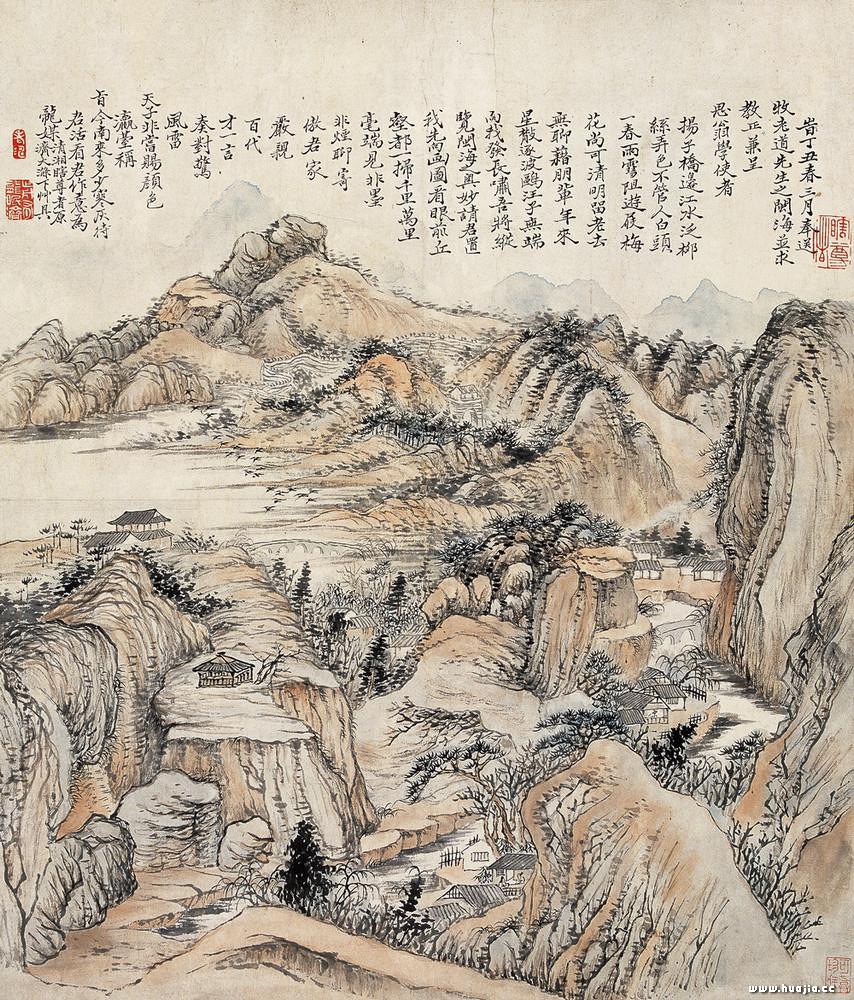 岩丁丑春三月奉送
牧老道先生之閩海並求
教正兼呈
思翁學使者
揚子橋邊江水泛柳
絲弄色不管人白頭
一春雨雪阻遊屐梅
花尚可清明留老去
無聊藉朋輩年來
星散逐波鷗汪子無端
向我發長嘯吾將縱
覽閩海之奧妙請君置
我先畫圖看眼前丘
壑都一掃千里萬里
毫端見非墨
非煙聊寄
傲君家
嚴親
百代
才一言
奏對驚
風雷
天子非常賜顏色
瀛臺稱
旨今南來多多寒疾待
君活看君作意為
龍媒清湘瞎尊者原
濟大滌下艸具
瞎尊者
www.huajia.cc